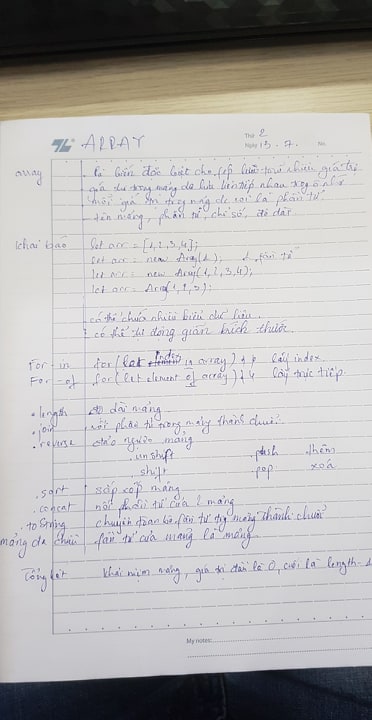 Thứ 2
ARRAY Ngày 13. 7. No.
array là biến đặc biệt cho phép lưu trữ nhiều giá trị
giá trị trong mảng đc lưu liên tiếp nhau trong ô nhớ
mỗi giá trị trong mảng đc gọi là phần tử
tên mảng, phần tử, chỉ số, độ dài.
khai báo let arr = [1,2,3,4];
let arr = new Array(1); 1 phần tử
let arr = new Array(1,2,3,4);
let arr = Array(1,2,3);
có thể chứa nhiều kiểu dữ liệu.
có thể tự động giãn kích thước.
For-in for(let index in array) { } lấy index.
For-of for(let element of array) { } lấy trực tiếp.
.length độ dài mảng
.join nối phần tử trong mảng thành chuỗi.
.reverse đảo ngược mảng
.unshift .push thêm
shift pop xoá
.sort sắp xếp mảng
.concat nối phần tử của 2 mảng
.toString chuyển toàn bộ phần tử trg mảng thành chuỗi
mảng đa chiều phần tử của mảng là mảng.
Tổng kết khái niệm mảng, giá trị đầu là 0, cuối là length-1
My notes: